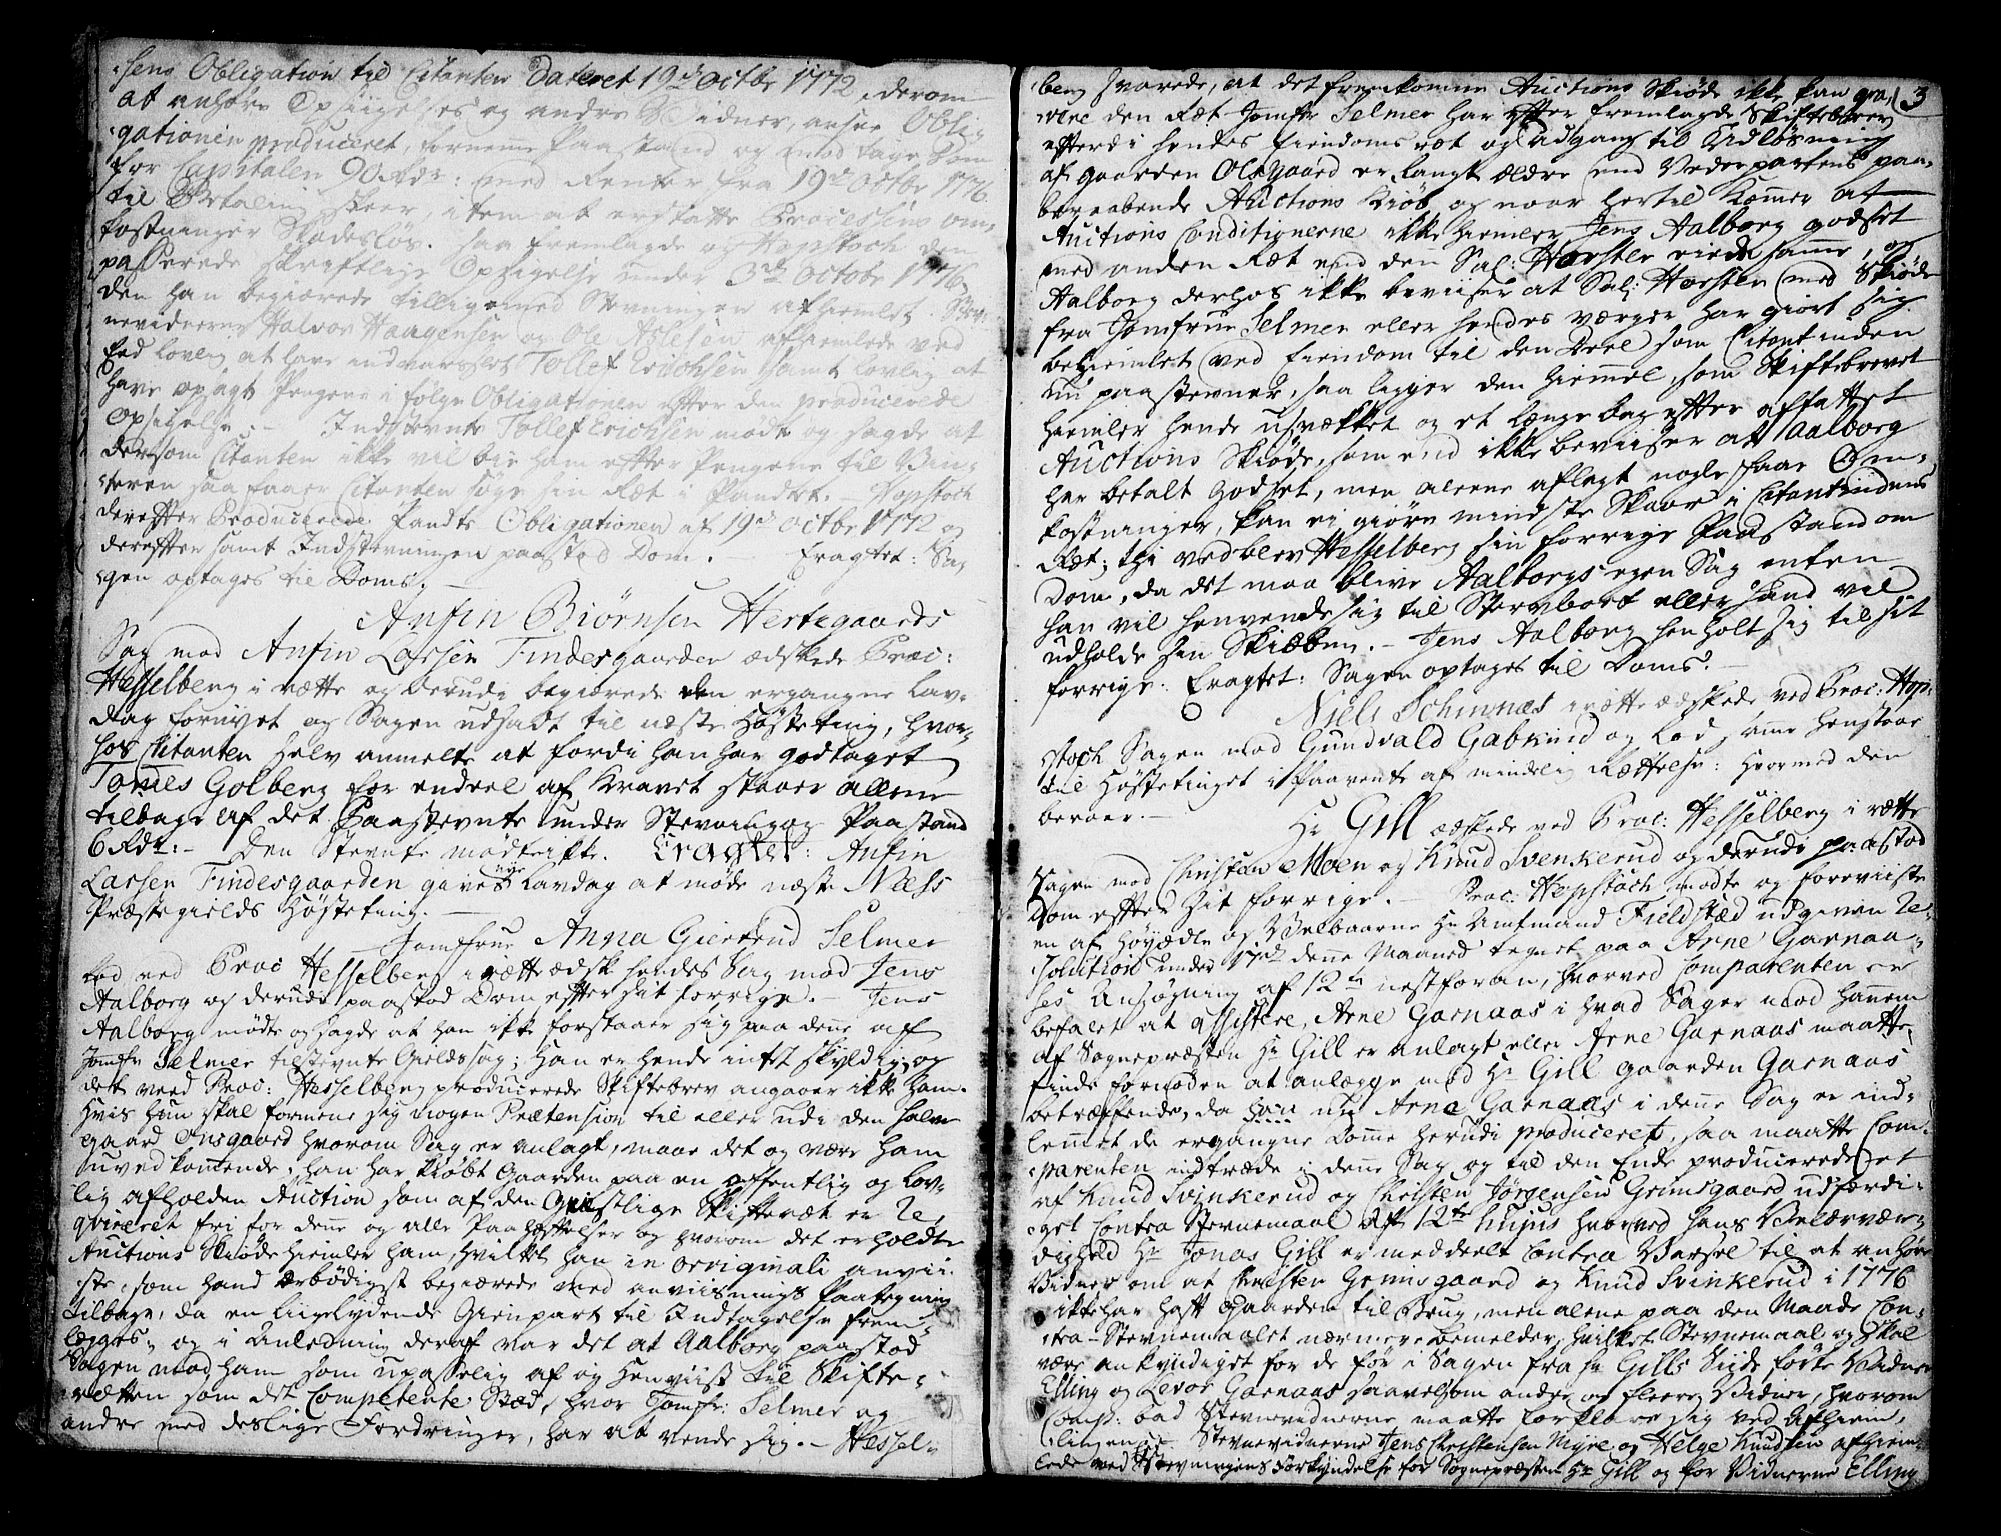 sens Obligation til Citanten Dateret 19de Octbr 1772, derom
at anhøre Opsigelses og andre Vidner, ansee Obli-
gationen produceret, fornemme Paastand og modtage Dom
for Capitalen 90 Rdr: med Renter fra 19de Octbr 1776
til Betaling skeer, item at erstatte Processens om-
kostninger Skadesløs. Saa fremlagde og Hopstock den
passerede skriftlige Opsigelse under 3de Octobr 1776,
den han begiærede tilligemed Stevningen afhiemlet. Stev-
nevidnerne Halvor Haagensen og Ole Aslesen afhiemlede ved
Eed lovlig at have indvarslet Tollef Erichsen samt lovlig at
have opsagt Pengene i følge Obligationen efter den producerede
Opsigelse. – Indstevnte Tollef Erichsen mødte og sagde at
dersom Citanten ikke vil bie ham efter Pengene til Vin-
teren saa faaer Citanten søge sin Ræt i Pandtet. Hopstock
derefter Producerede Pandte Obligationen af 19de Octbr 1772 og
derefter samt Indstevningen paastod Dom. Eragtet: Sa-
gen optages til Doms. –
Anfin Biørnsen Hertegaards
Sag mod Anfin Larsen Findesgaarden ædskede Proc:
Hesselberg i rætte og derudi begiærede den ergangne Lav-
dag fornyet og Sagen udsadt til næste Høsteting, hvor-
hos Citanten selv anmelte at fordi han har godtaget
Tomes Golberg for endeel af Kravet staaer allene
tilbage af det Paastevnte under Stevning og Paastand
6 Rdr: – Den Stevnte mødte ikke. Eragtet: Anfin
Larsen Findesgaarden gives nye Lavdag at møde næste Næss
Præstegields Høsteting. –
Jomfrue Anna Giertrud Selmer
lod ved Proc Hesselberg i rætte ædske hendes Sag mod Jens
Aalborg og derudi paastod Dom efter sit forrige. – Jens
Aalborg mødte og sagde at han ikke forstaaer sig paa denne af
Jomfr Selmer tilstevnte Gieldssag; han er hende intet skyldig, og
det ved Proc: Hesselberg producerede Skiftebrev angaaer ikke ham.
Hvis hun skal formene sig nogen Prætension til eller udi den halve
gaard Olsgaard hvorom Sag er anlagt, maae det og være ham
uvedkommende; han har kiøbt Gaarden paa en offentlig og lov-
lig afholden Auction som af den Geistlige Skifteræt er Re-
qvireret fri for denne og alle Paaheftelser og hvorom det erholdte
Auctions Skiøde hiemler ham, hvilket han in originali anvii-
ste, som hand ærbødigst begiærede med anviisnings Paategning
tilbage, da en liigelydende Gienpart til Indtagelse frem-
lægges; og i Anledning deraf var det at Aalborg paastod
Sagen mod ham som upasselig af og henviist til Skifte-
retten som det Competente Stæd, hvor Jomfr: Selmer og
andre med deslige Fordringer, har at vende sig. – Hessel-
3
berg svarede, at det fremkomne Auctions Skiøde ikke kan gra-
vere den Ræt Jomfr Selmer har efter fremlagde Skiftebrev
efterdi hendes Eiendoms ræt og adgang til Udløsning
af gaarden Olsgaard er langt ældre end Vederpartens paa-
beraabende Auctions Kiøb og naar hertil kommer at
Auctions Conditionerne ikke hiemler Jens Aalborg godset
med anden Ræt end den Sal: Horster eiede samme, og
Aalborg derhos ikke beviiser at Sal: Horsten med Skiøde
fra Jomfrue Selmer eller hendes værger har giort sig
behiemlet ved Eiendom til den Deel som Citantinden
nu paastevner, saa ligger den hiemmel, som Skiftebrevet
hiemler hende usvækket og et længe bag efter affattet
Auctions Skiøde, som end ikke beviiser at Aalborg
har betalt Godset, men alene aflagt nogle faae Om-
kostninger, kan ei giøre mindste Skaar i Citantindens
Ræt; thi vedblev Hesselberg sin forrige Paastand om
Dom, da det maa blive Aalborgs egen Sag enten
han vil henvende sig til Stervboet eller hand vil
udholde sin Skiæbne. – Jens Aalborg henholt sig til sit
forrige. Eragtet: Sagen optages til Doms. –
Niels Schinnæs i rætte ædskede ved Proc: Hop-
stoch Sagen mod Gundvald Gabkind og lod samme henstaae
til Høstetinget i Paavente af mindelig Rættelse: hvormed den
beroer. –
Hr Gill ædskede ved Proc: Hesselberg i rætte
Sagen mod Christen Moen og Knud Svenkerud og derudi paastod
Dom efter sit forrige. – Proc: Hopstoch mødte og foreviiste
en af Høyædle og Velbaarne Hr Amtmand Fieldsted udgiven Re-
solution under 17de denne Maaned tegnet paa Arne Garnaa-
ses Ansøgning af 12te nestforan, hvorved Comparenten er
befalet at assistere Arne Garnaas i hvad Sager mod hannem
af Sognepræsten Hr Gill er anlagt eller Arne Garnaas maatte
finde fornøden at anlægge mod Hr Gill gaarden Garnaas
betreffende, da han nu Arne Garnaas i denne Sag er ind-
lemmet de ergangne Domme herudi produceret, saa maatte Com-
parenten indtræde i denne Sag og til den Ende producerede et
af Knud Svinkerud og Christen Jørgensen Grimsgaard udfærdi-
get Contra Stevnemaal af 12te hujus hvorved hans Velærvær-
dighed Hr Jonas Gill er meddeelt Contra Varsel til at anhøre
Vidner om at Christen Grimsgaard og Knud Svinkerud i 1776
ikke har haft Gaarden til Brug, men alene paa den Maade Con-
tra-Stevnemaalet nærmere bemelder, hvilket Stevnemaal og skal
være ankyndiget for de før i Sagen fra Hr Gills Siide førte Vidner
Elling og Levor Garnaas saavelsom andre og fleere Vidner, hvorom
Comp: bad Stevnevidnerne maatte forklare sig ved Afhiem-
lingen. Stevnevidnerne Jens Christensen Myre og Helge Knudsen afhiem-
lede ved Eed Stevningens Forkyndelse for Sognepræsten Hr Gill og for Vidnerne Elling